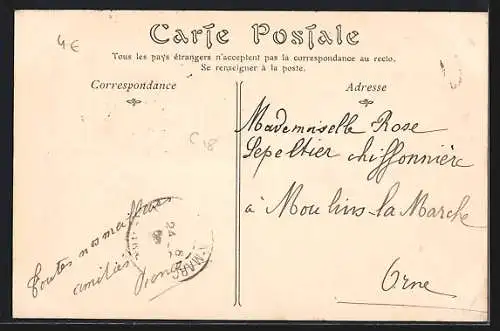 4€
Carte Postale
Tous les pays étrangers n'acceptent pas la correspondance au recto.
Se renseigner à la poste.
Correspondance
Adresse
Mademoiselle Rose
Lepeltier chiffonnière
à Moulins-la-Marche
Orne
Toutes nos meilleures
amitiés
24
8
MARC